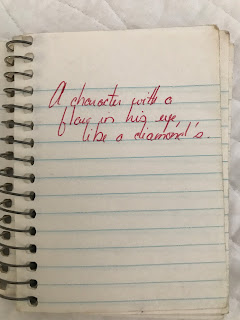 A character with a
flaw in his eye,
like a diamond's.